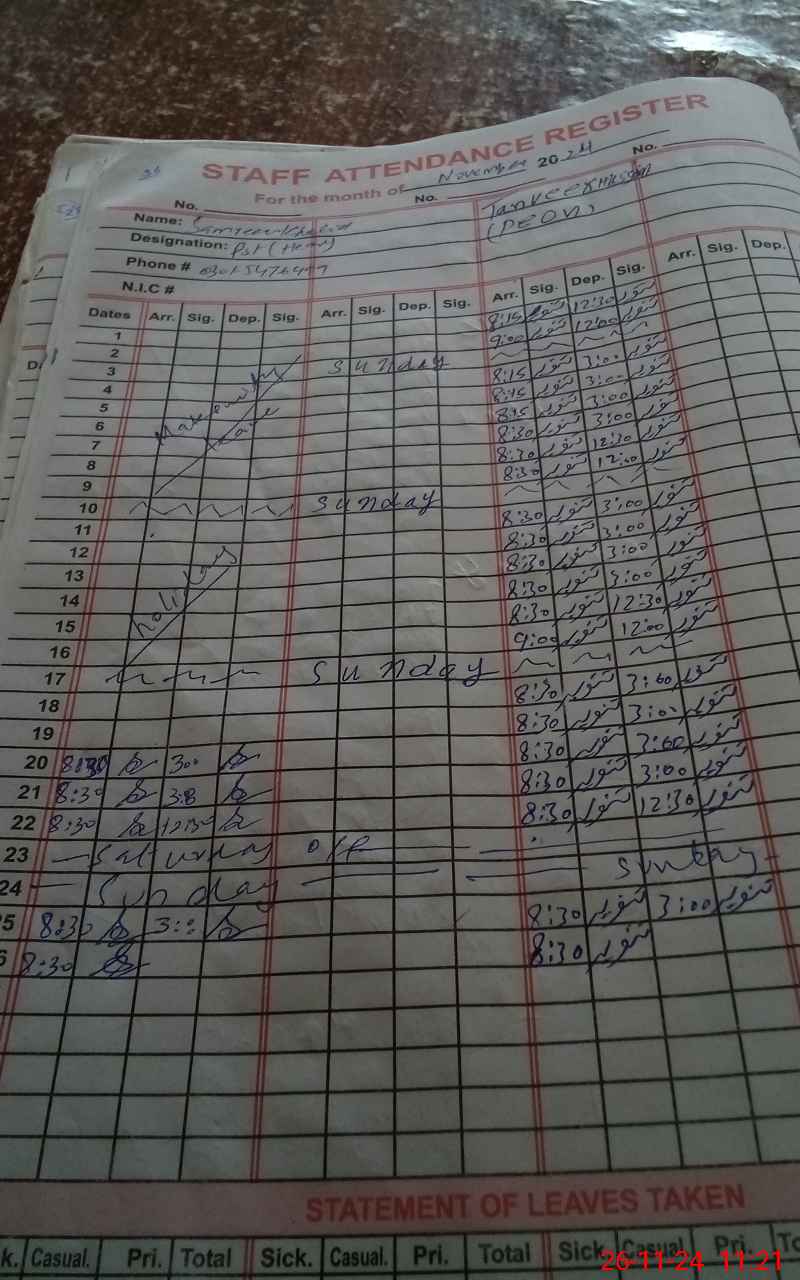 STAFF ATTENDANCE REGISTER
For the month of November 2024
No. No. No.
Name:
Designation: Pst (Head) (PEON)
Phone #
N.I.C #
Dates Arr. Sig. Dep. Sig. Arr. Sig. Dep. Sig. Arr. Sig. Dep. Sig. Arr. Sig. Dep.
1 8:15 تنویر 12:30 تنویر
2 9:00 تنویر 12:00 تنویر
3 Sunday
4 8:15 تنویر 3:00 تنویر
5 8:15 تنویر 3:00 تنویر
6 8:15 تنویر 3:00 تنویر
7 8:30 تنویر 3:00 تنویر
8 8:30 تنویر 12:30 تنویر
9 8:30 تنویر 12:00 تنویر
Leave
10 Sunday
11 8:30 تنویر 3:00 تنویر
12 8:30 تنویر 3:00 تنویر
13 8:30 تنویر 3:00 تنویر
14 8:30 تنویر 3:00 تنویر
15 8:30 تنویر 12:30 تنویر
16 9:00 تنویر 12:00 تنویر
holidays
17 Sunday
18 8:30 تنویر 3:00 تنویر
19 8:30 تنویر 3:00 تنویر
20 8:30 3:00 8:30 تنویر 3:00 تنویر
21 8:30 8:30 تنویر 3:00 تنویر
22 8:30 12:30 8:30 تنویر 12:30 تنویر
23 Saturday off
24 Sunday Sunday
5 8:30 3:00 8:30 تنویر 3:00 تنویر
6 8:30 8:30 تنویر
STATEMENT OF LEAVES TAKEN
k. Casual. Pri. Total Sick. Casual. Pri. Total Sick. Casual. Pri. To
26-11-24 11:21